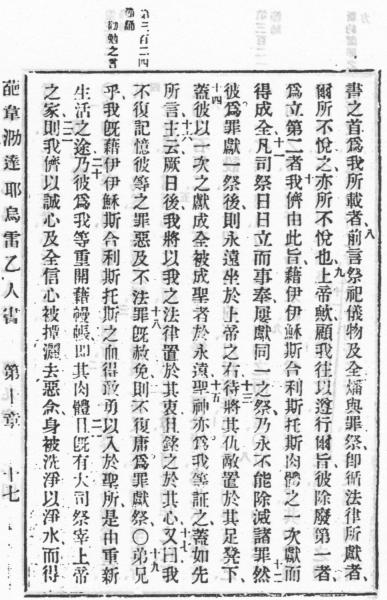 第三百二四
勸勉之言
八
書之首爲我所載者前言祭祀儀物及全燔與罪祭卽循法律所獻者
九
爾所不悅之亦所不悅也上帝歟顧我往以遵行爾旨彼除廢第一者
十
爲立第二者我儕由此旨藉伊伊穌斯合利斯托斯肉體之一次獻而
十一 十二
得成全凡司祭日日立而事奉屢獻同一之祭乃永不能除滅諸罪然
十三
彼爲罪獻一祭後則永遠坐於上帝之右待將其仇敵置於其足凳下
十四 十五
蓋彼以一次之獻成全被成聖者於永遠聖神亦爲我等証之蓋如先
十六 十七
所言主云厥日後我將以我之法律置於其衷且銘之於其心又曰我
十八 十九
不復記憶彼等之罪惡及不法罪旣赦免則不復庸爲罪獻祭○弟兄
二十
乎我旣藉伊伊穌斯合利斯托斯之血得敢勇以入於聖所是由重新
二一
生活之途乃彼爲我等重開藉幔帳卽其肉體且旣有大司祭宰上帝
二二
之家則我儕以誠心及全信心被灑去惡念身被洗淨以淨水而得
葩韋泐達耶烏雷乙人書 第十章 十七